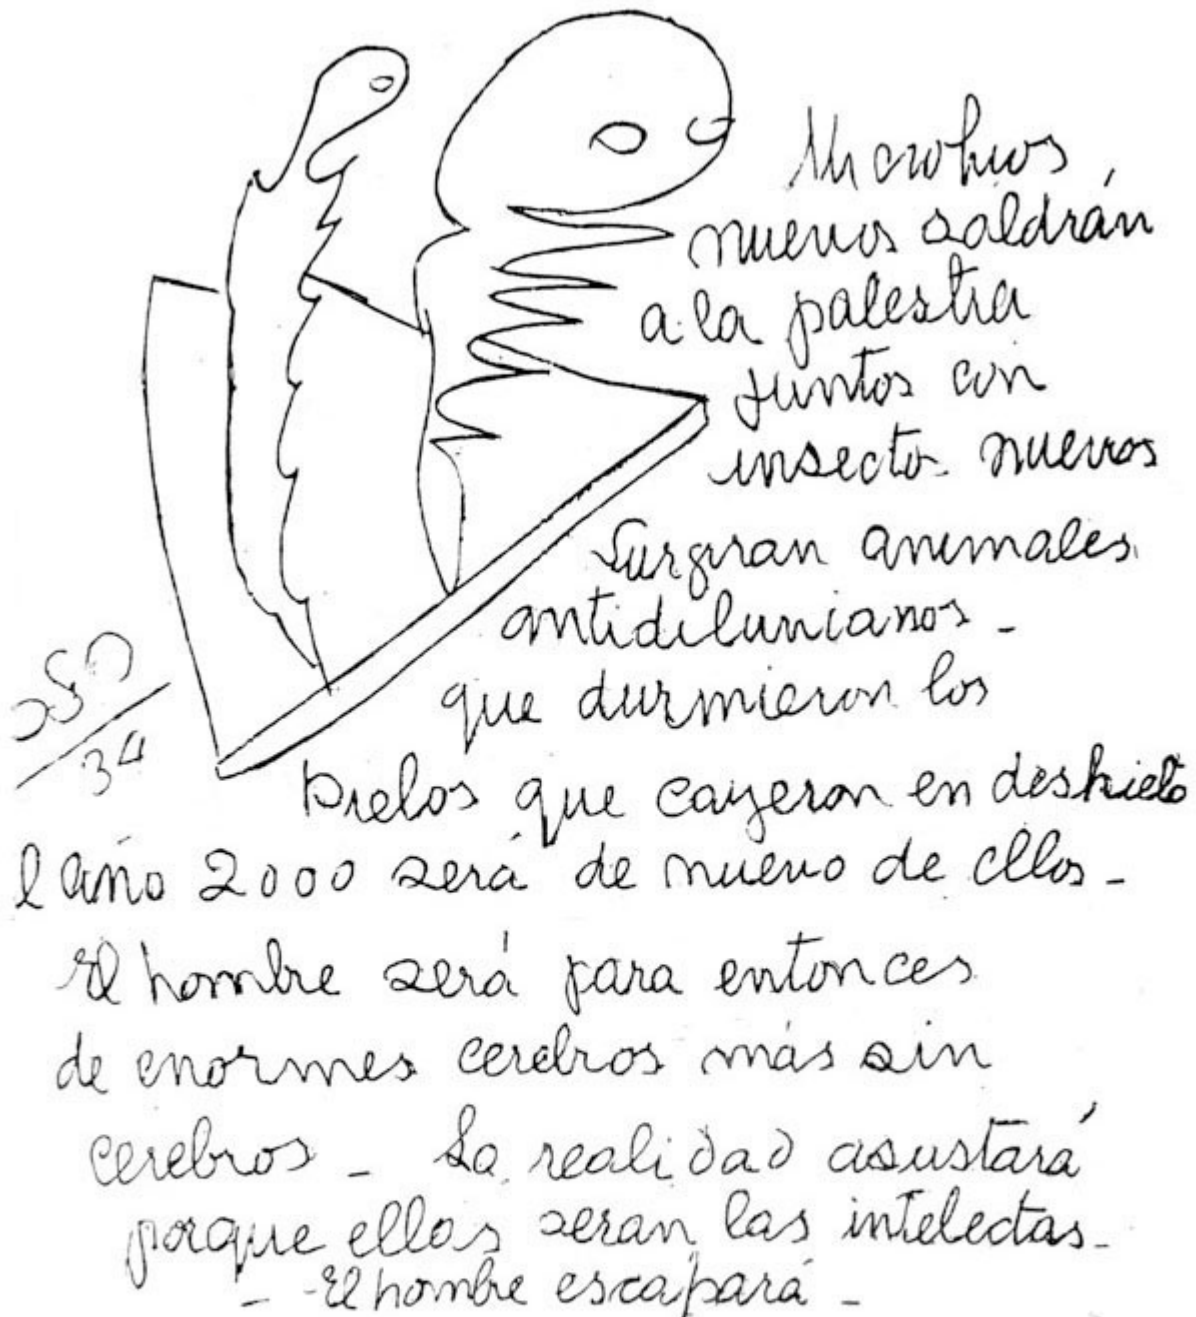 Microbios
nuevos saldrán
a la palestra
juntos con
insectos nuevos
Surgiran animales
antidiluvianos -
que durmieron los
hielos que cayeron en deshielo
l año 2000 será de nuevo de ellos -
El hombre será para entonces
de enormes cerebros más sin
cerebros - La realidad asustará
porque ellas seran las intelectas -
- El hombre escapará -
34